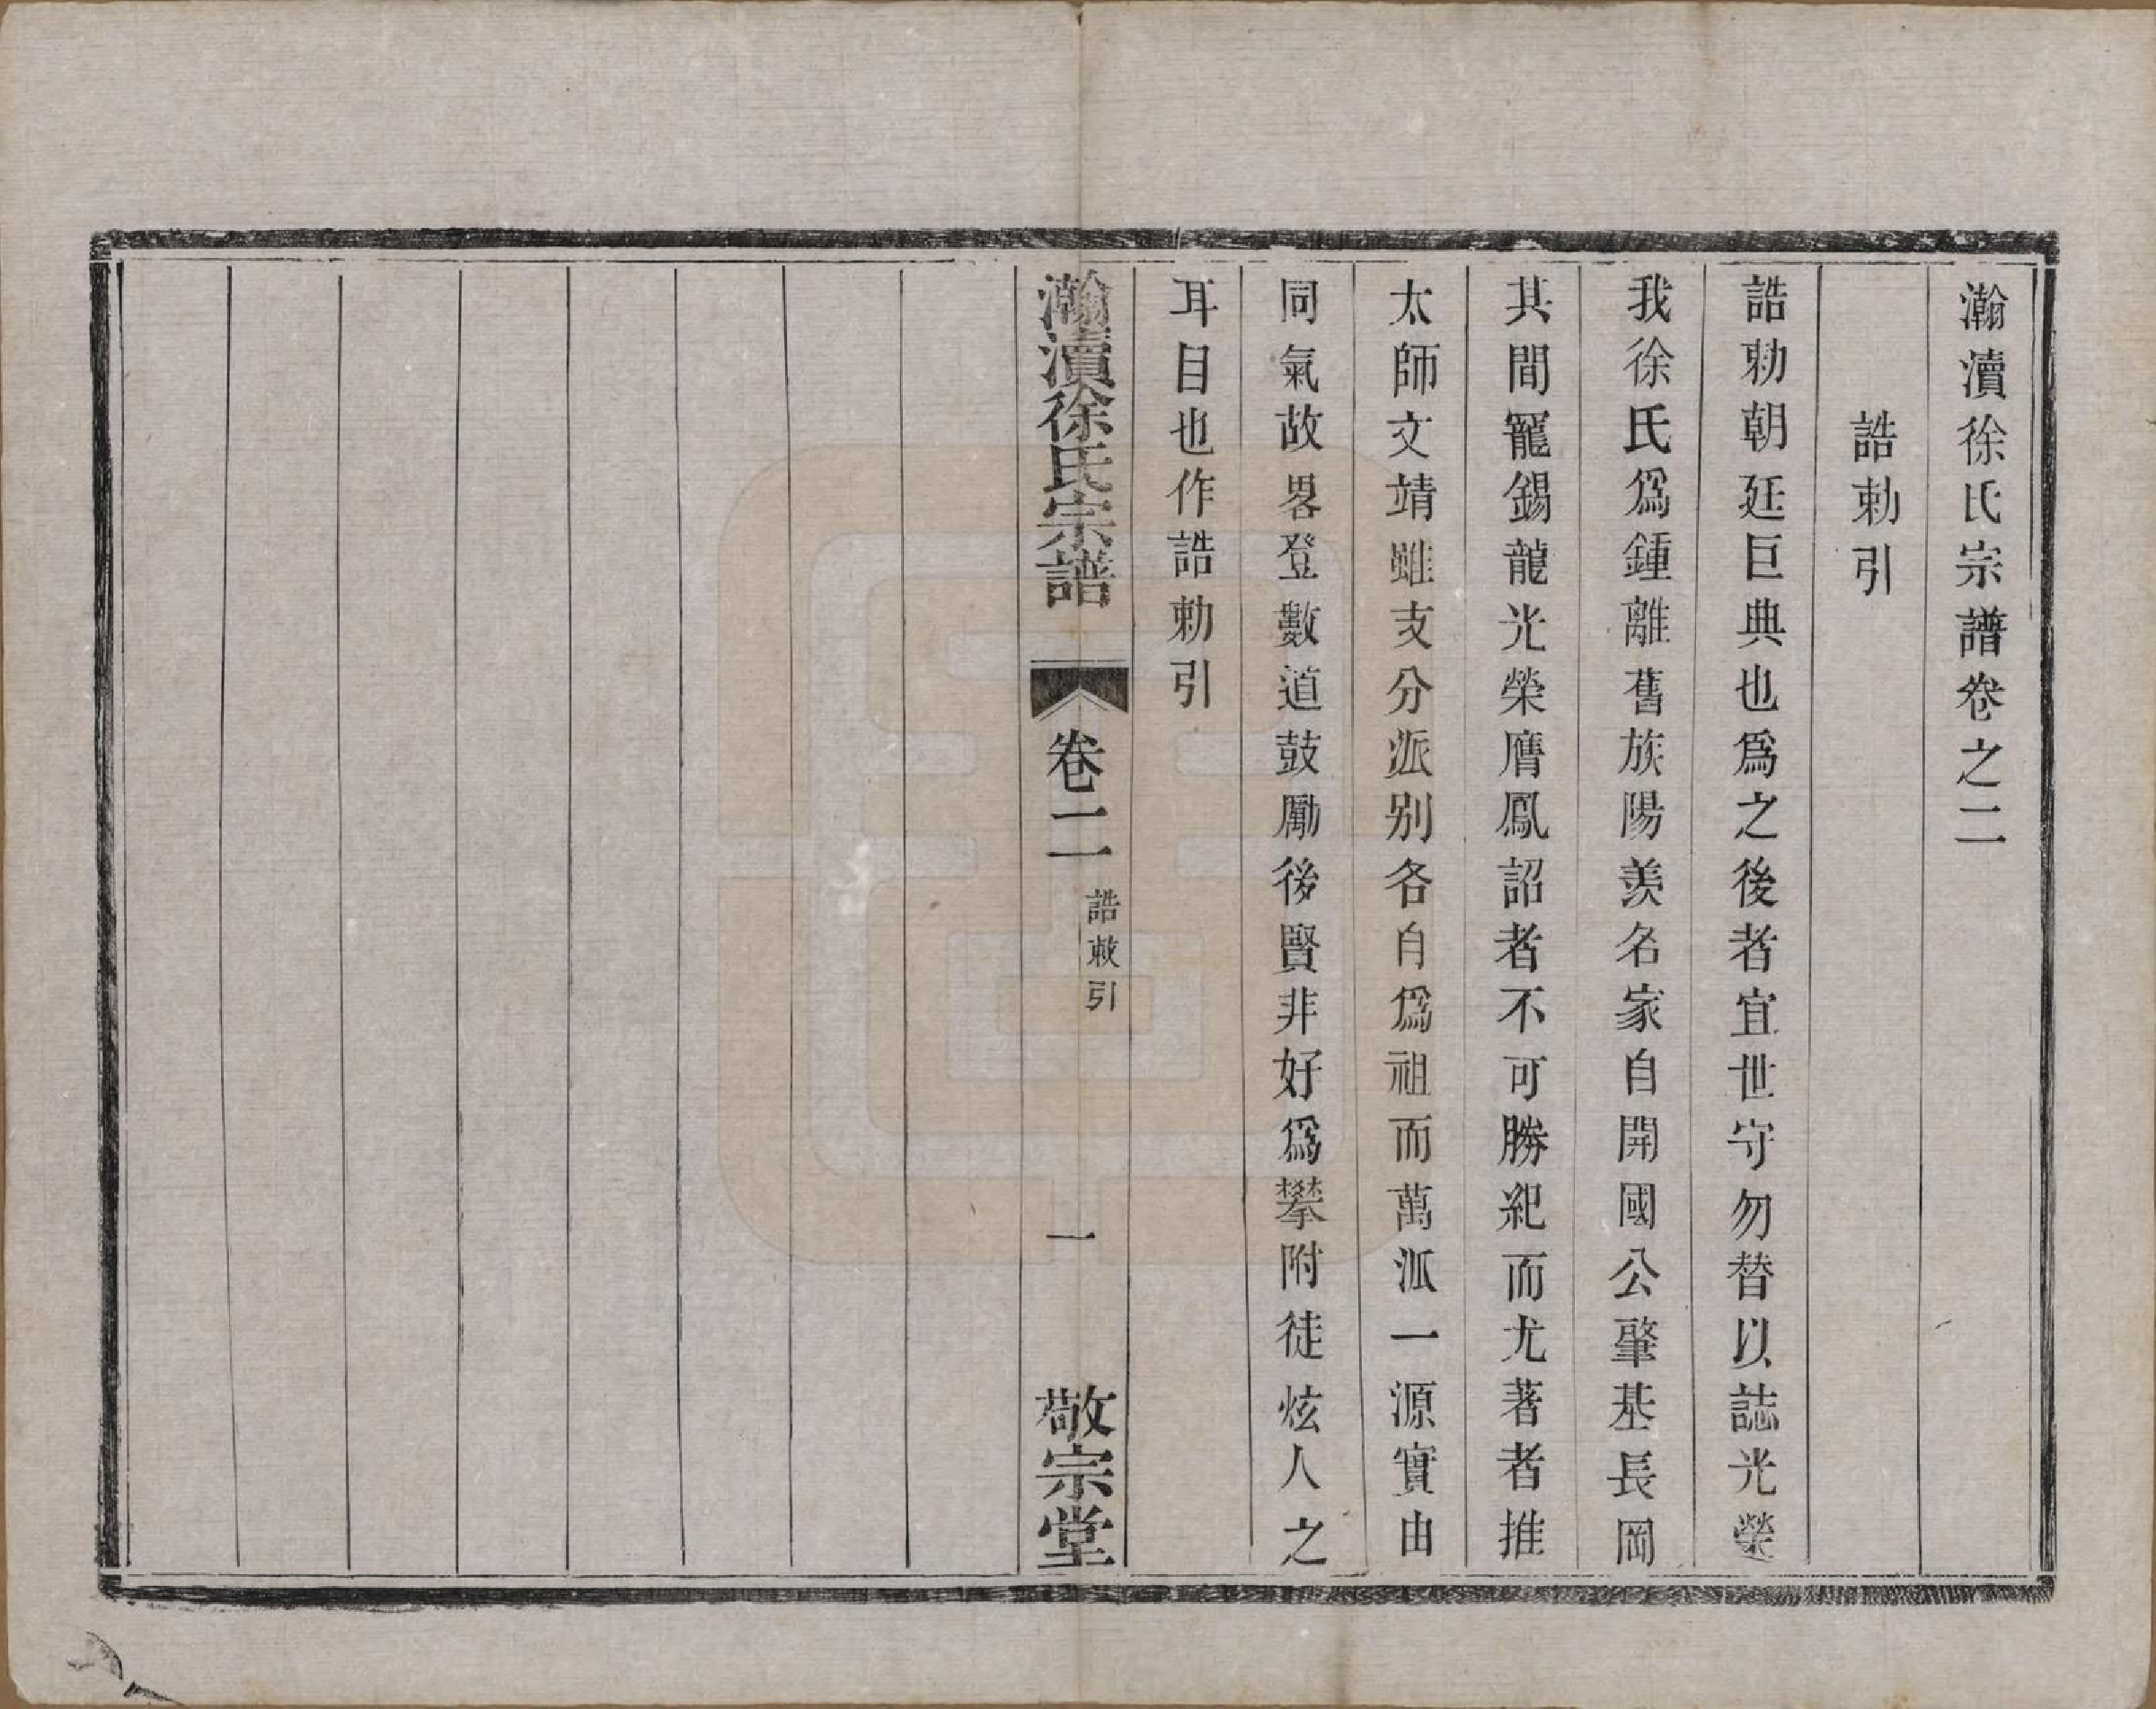 瀚瀆徐氏宗譜卷之二
誥勅引
誥勅朝廷巨典也爲之後者宜世守勿替以誌光榮
我徐氏爲鍾離舊族陽羨名家自開國公肇基長岡
其間寵錫龍光榮膺鳳詔者不可勝紀而尤著者推
太師文靖雖支分派别各自爲祖而萬派一源實由
同氣故畧登數道鼓勵後賢非好爲攀附徒炫人之
耳目也作誥勅引
瀚瀆徐氏宗譜
卷二
誥敕引
一
敬宗堂